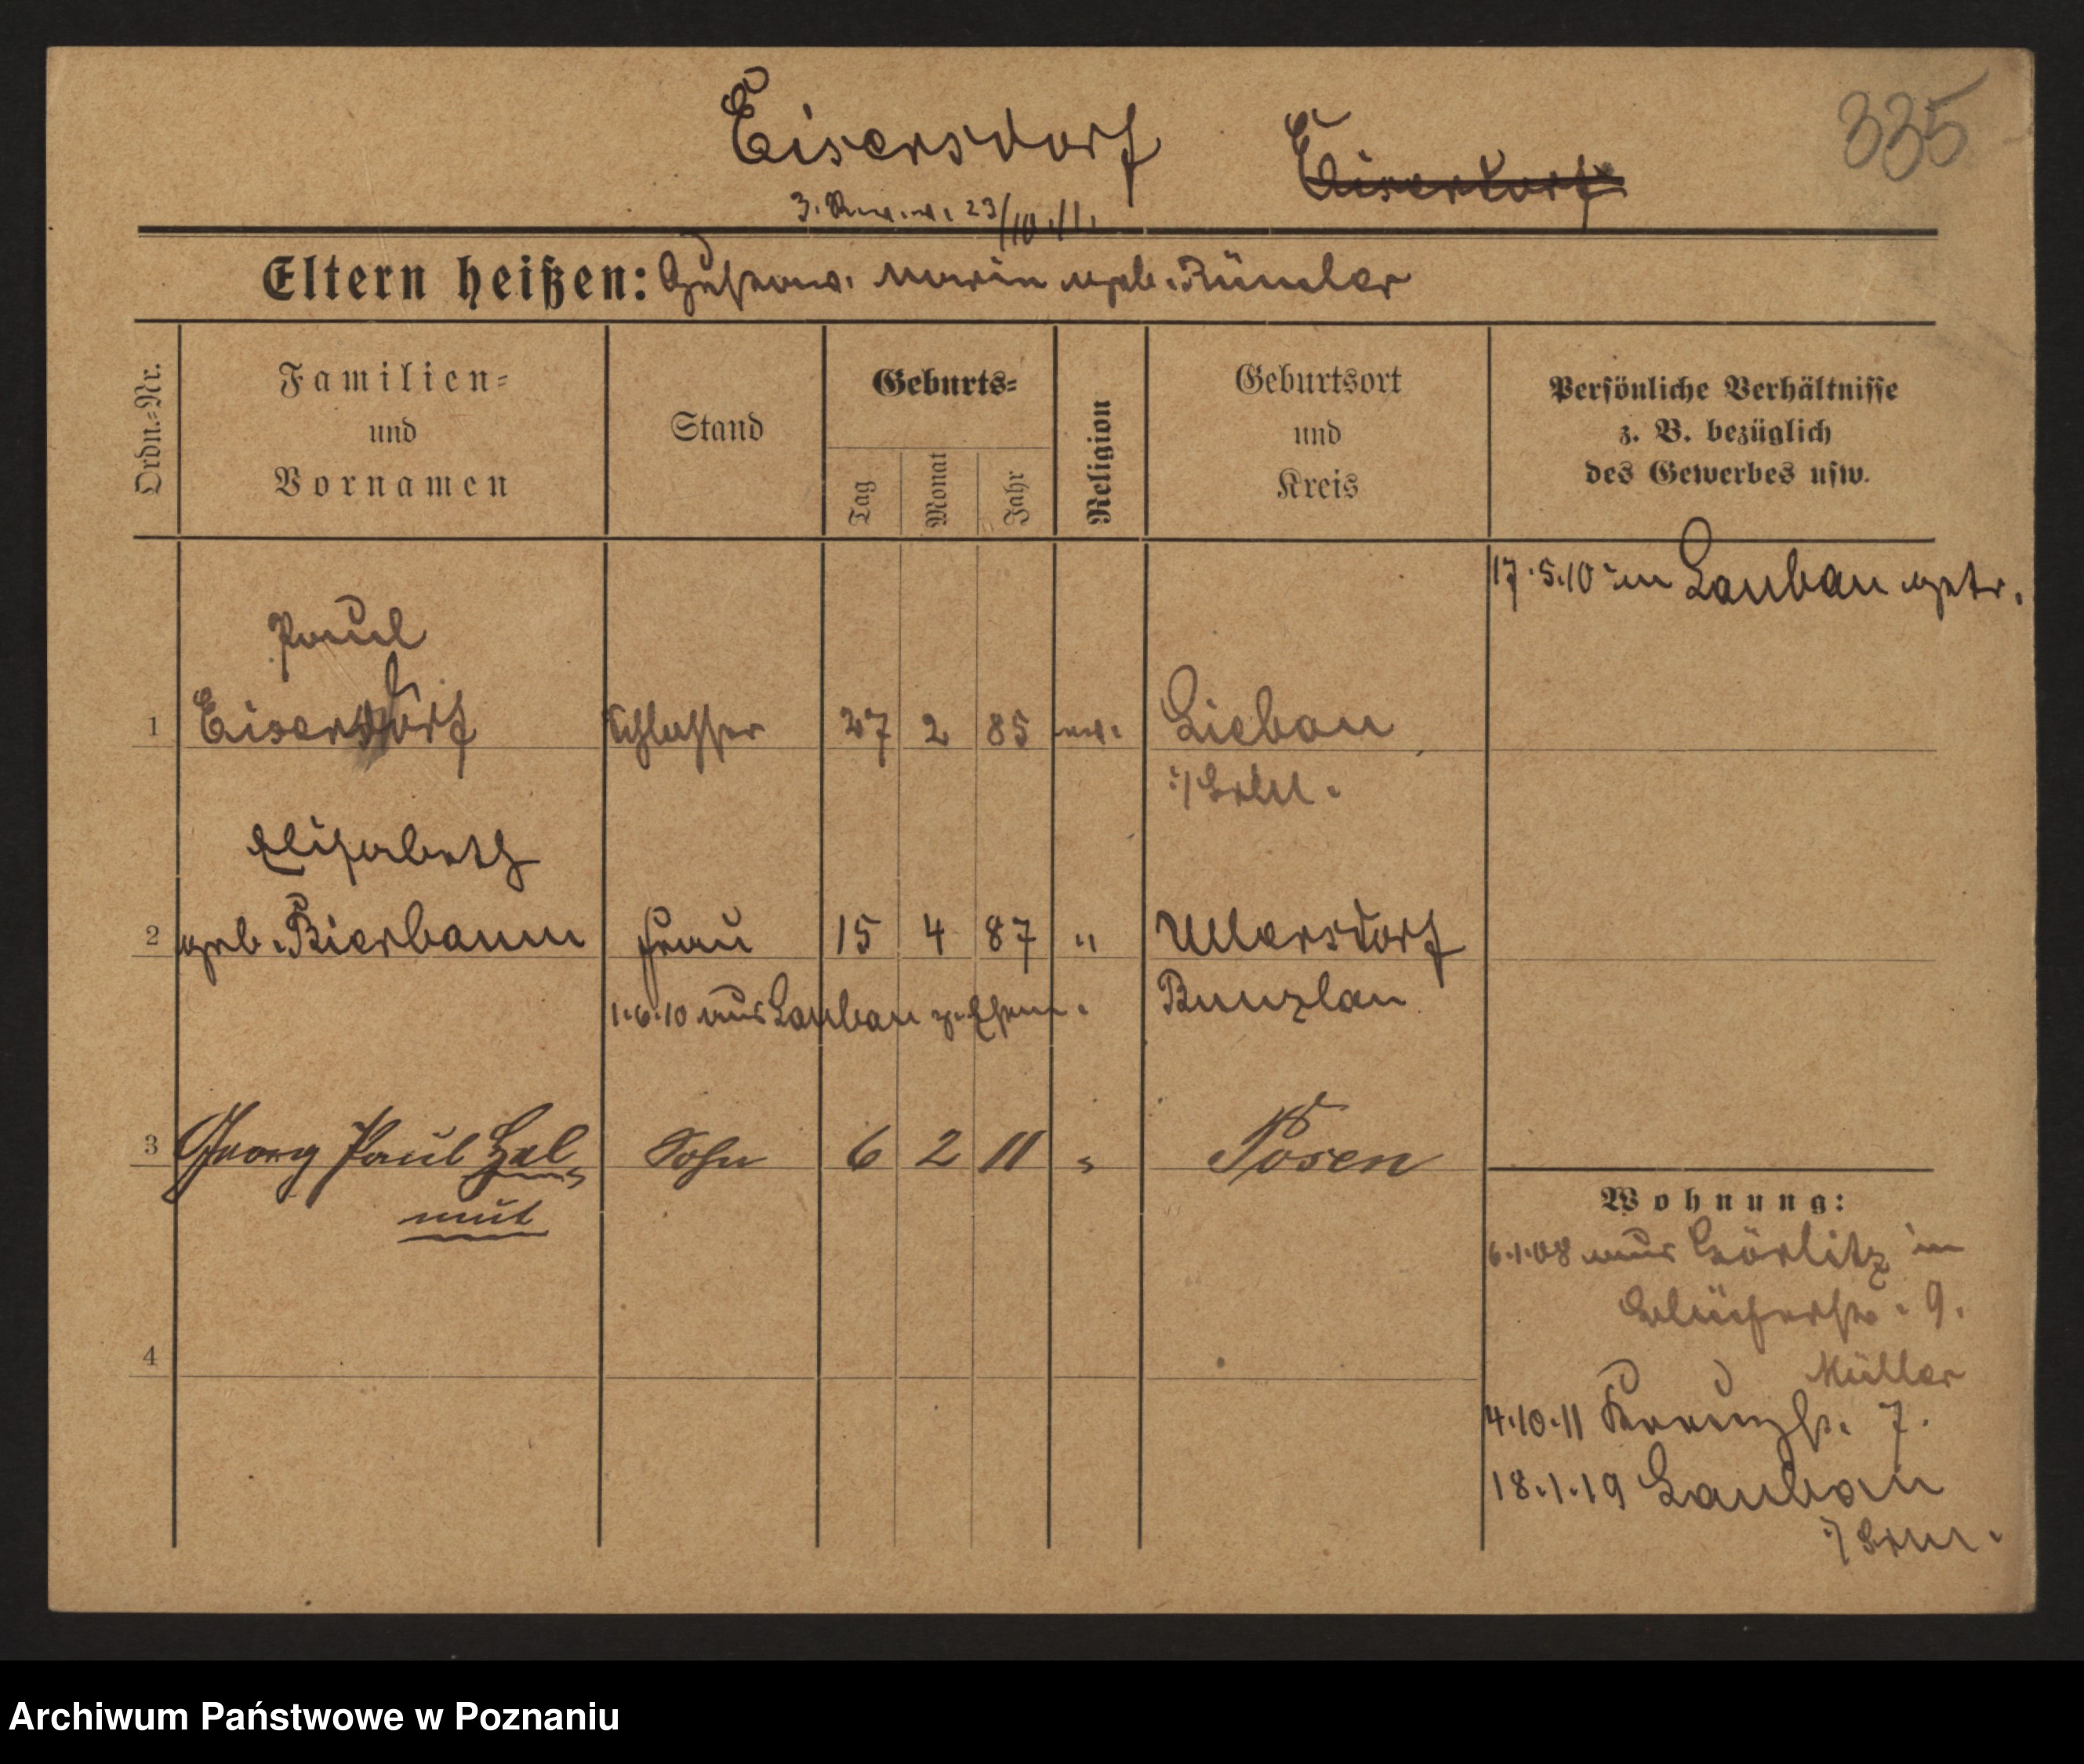 335
Eisersdorf Eiserdorf
23/10.11.
Eltern heißen: Gustav. Marie geb. Rümler
Ordn.=Nr.
Familien=
und
Vornamen
Stand
Geburts=
Tag
Monat
Jahr
Religion
Geburtsort
und
Kreis
Persönliche Verhältnisse
z. B. bezüglich
des Gewerbes usw.
17.5.10 in Lauban getr.
Paul
1 Eisersdorf Schlosser 27 2 85 ev. Liebau
i/Schl.
Elisabeth
2 geb. Bierbaum Frau 15 4 87 " Ullersdorf
1.6.10 aus Lauban z. Ehem. Bunzlau
3 Georg Paul Hel= Sohn 6 2 11 " Posen
mut
Wohnung:
6.1.08 aus Görlitz in
Blücherstr. 9.
Müller
4
4.10.11 Kreuzstr. 7.
18.1.19 Lauban
Archiwum Państwowe w Poznaniu